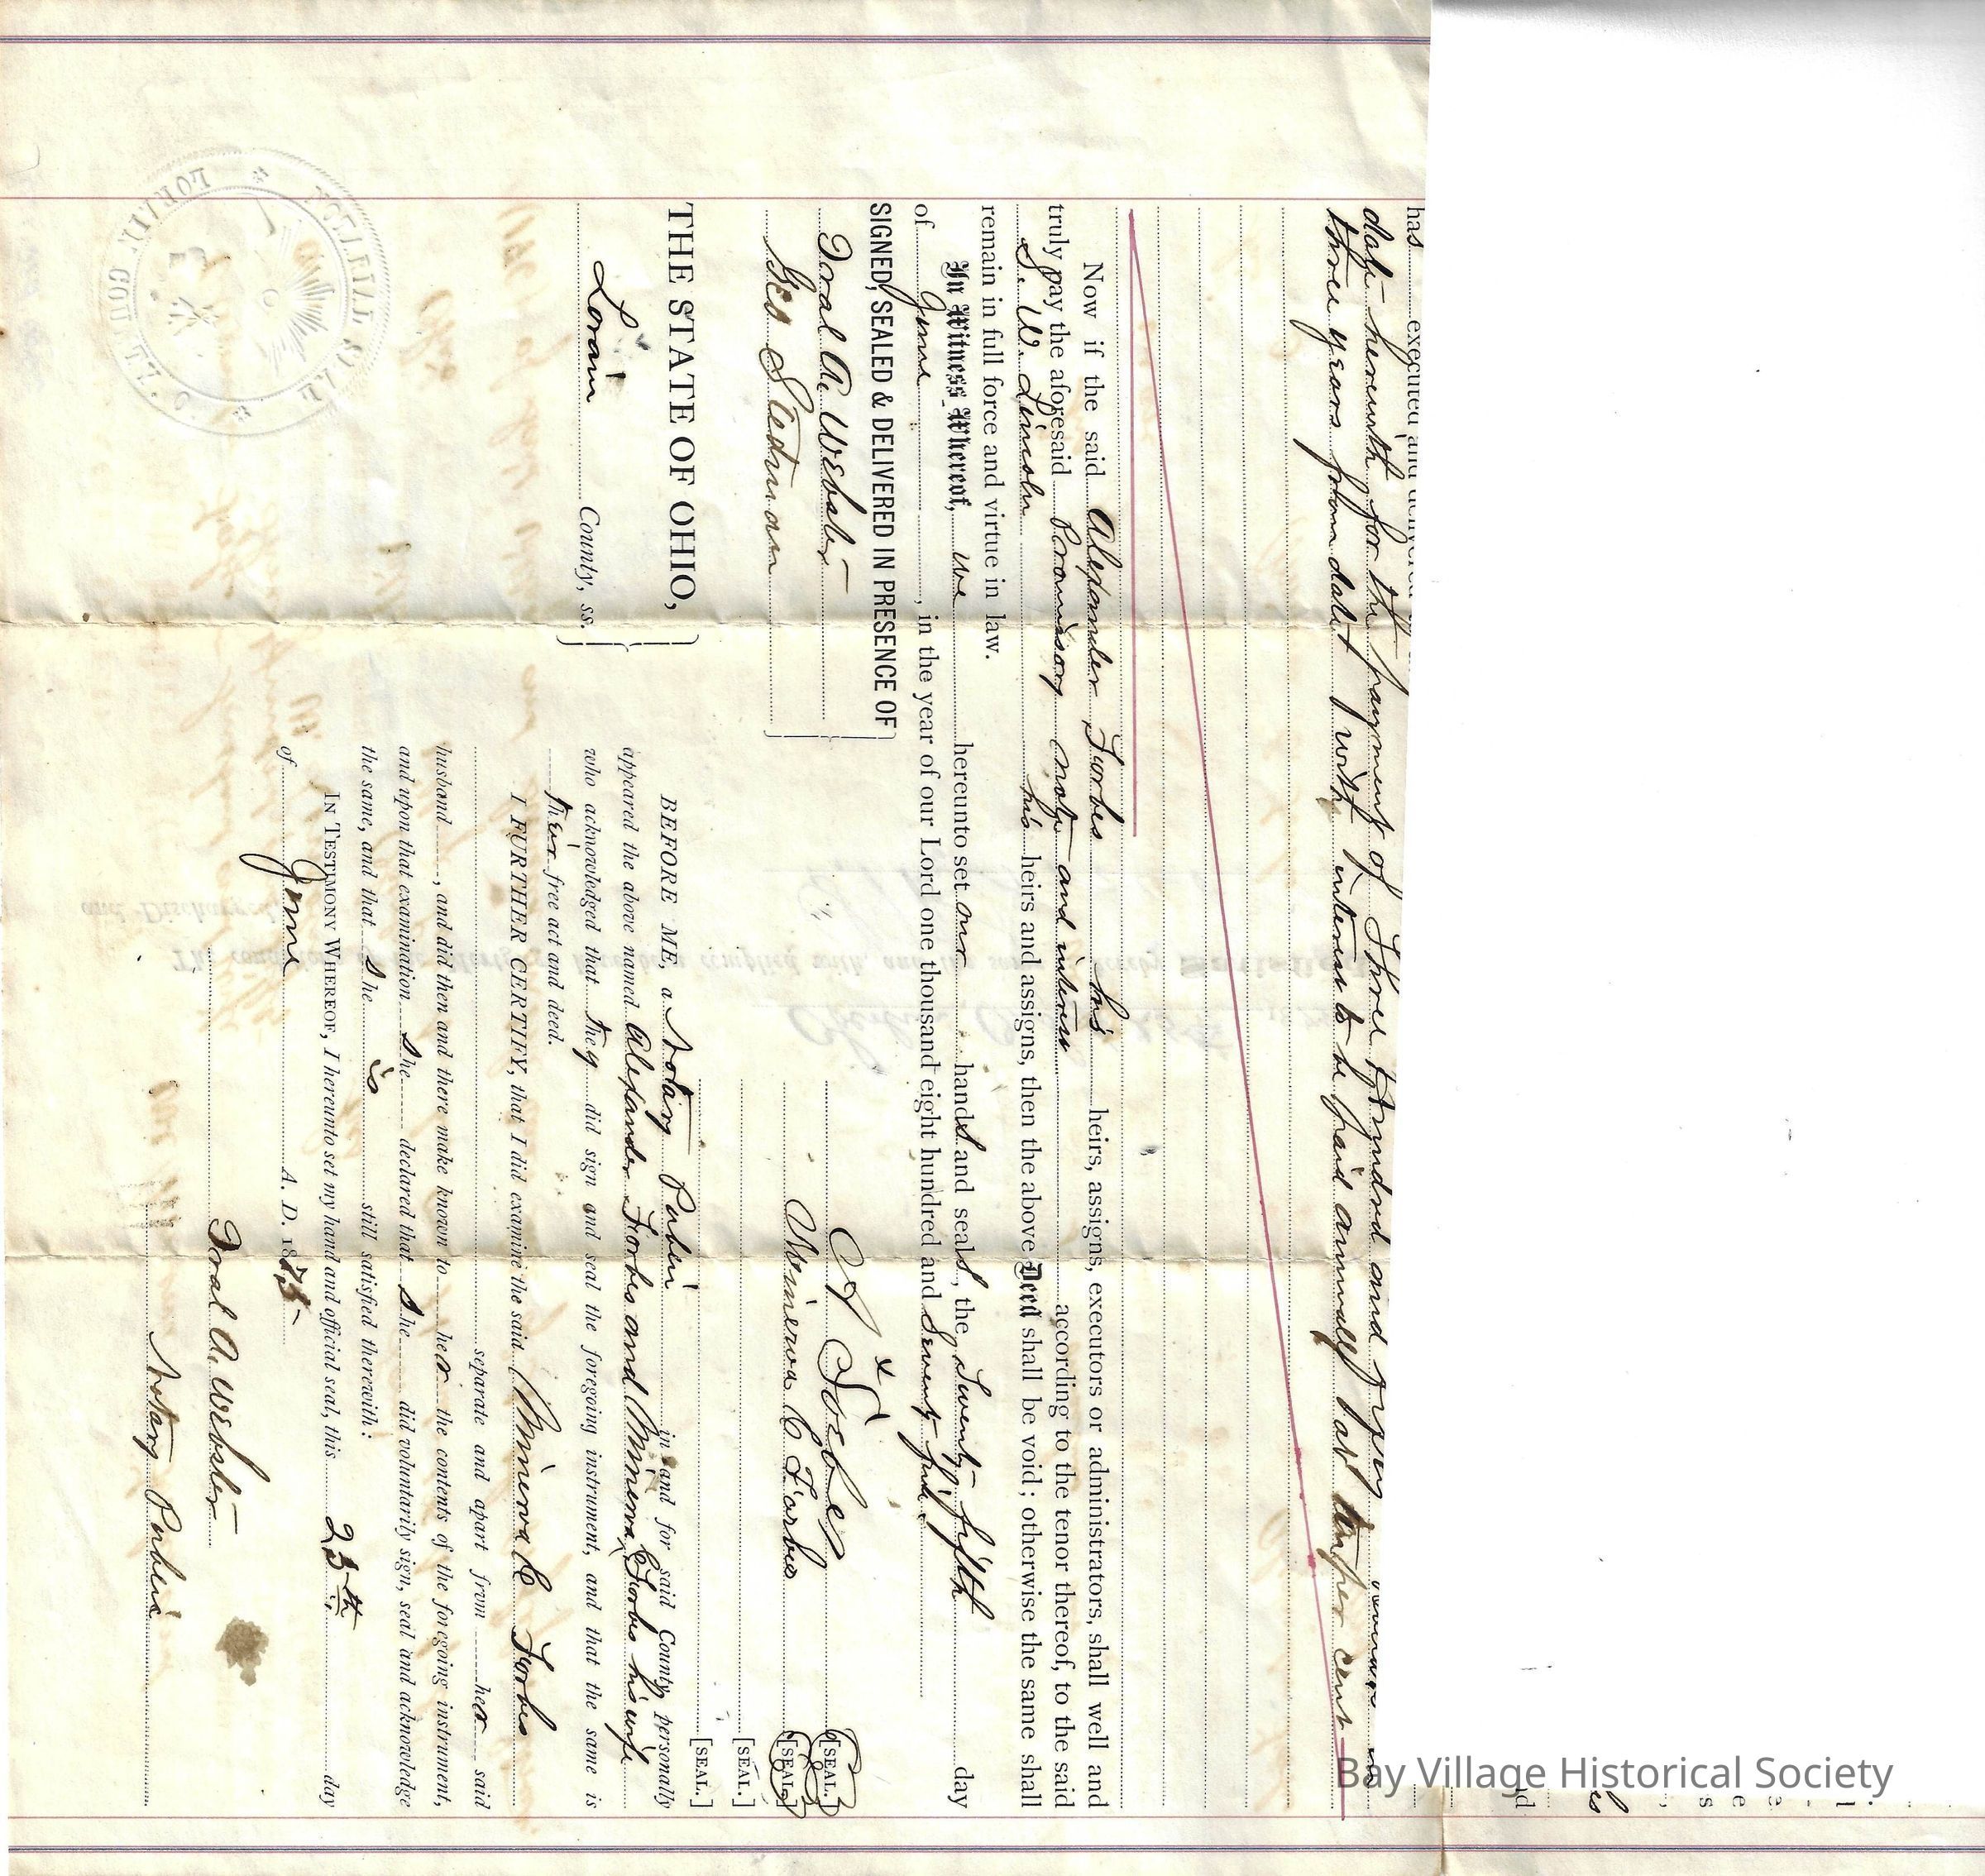 has executed and delivered
date herewith for the payment of Three Hundred and
three years from date with interest to be paid annually at ten per cent
Now if the said Alexander Forbes his heirs, assigns, executors or administrators, shall well and
truly pay the aforesaid Promissory note and interest according to the tenor thereof, to the said
S. W. Lincoln his heirs and assigns, then the above Deed shall be void; otherwise the same shall
remain in full force and virtue in law.
In Witness Whereof, we hereunto set our hands and seals, the Twenty fifth day
of June, in the year of our Lord one thousand eight hundred and Seventy five.
SIGNED, SEALED & DELIVERED IN PRESENCE OF
A Forbes [SEAL.]
Oral A. Webster
Minerva E Forbes [SEAL.]
Geo Stedman
[SEAL.]
[SEAL.]
THE STATE OF OHIO,
Lorain County, ss.
BEFORE ME, a Notary Public in and for said County, personally
appeared the above named Alexander Forbes and Minerva E Forbes his wife
who acknowledged that they did sign and seal the foregoing instrument, and that the same is
their free act and deed.
I FURTHER CERTIFY, that I did examine the said Minerva E Forbes
separate and apart from her said
husband, and did then and there make known to her the contents of the foregoing instrument,
and upon that examination She declared that She did voluntarily sign, seal and acknowledge
the same, and that She is still satisfied therewith:
IN TESTIMONY WHEREOF, I hereunto set my hand and official seal, this 25th day
of June A. D. 1875
Oral A. Webster
Notary Public
NOTARIAL SEAL
LORAIN COUNTY, O.
Bay Village Historical Society